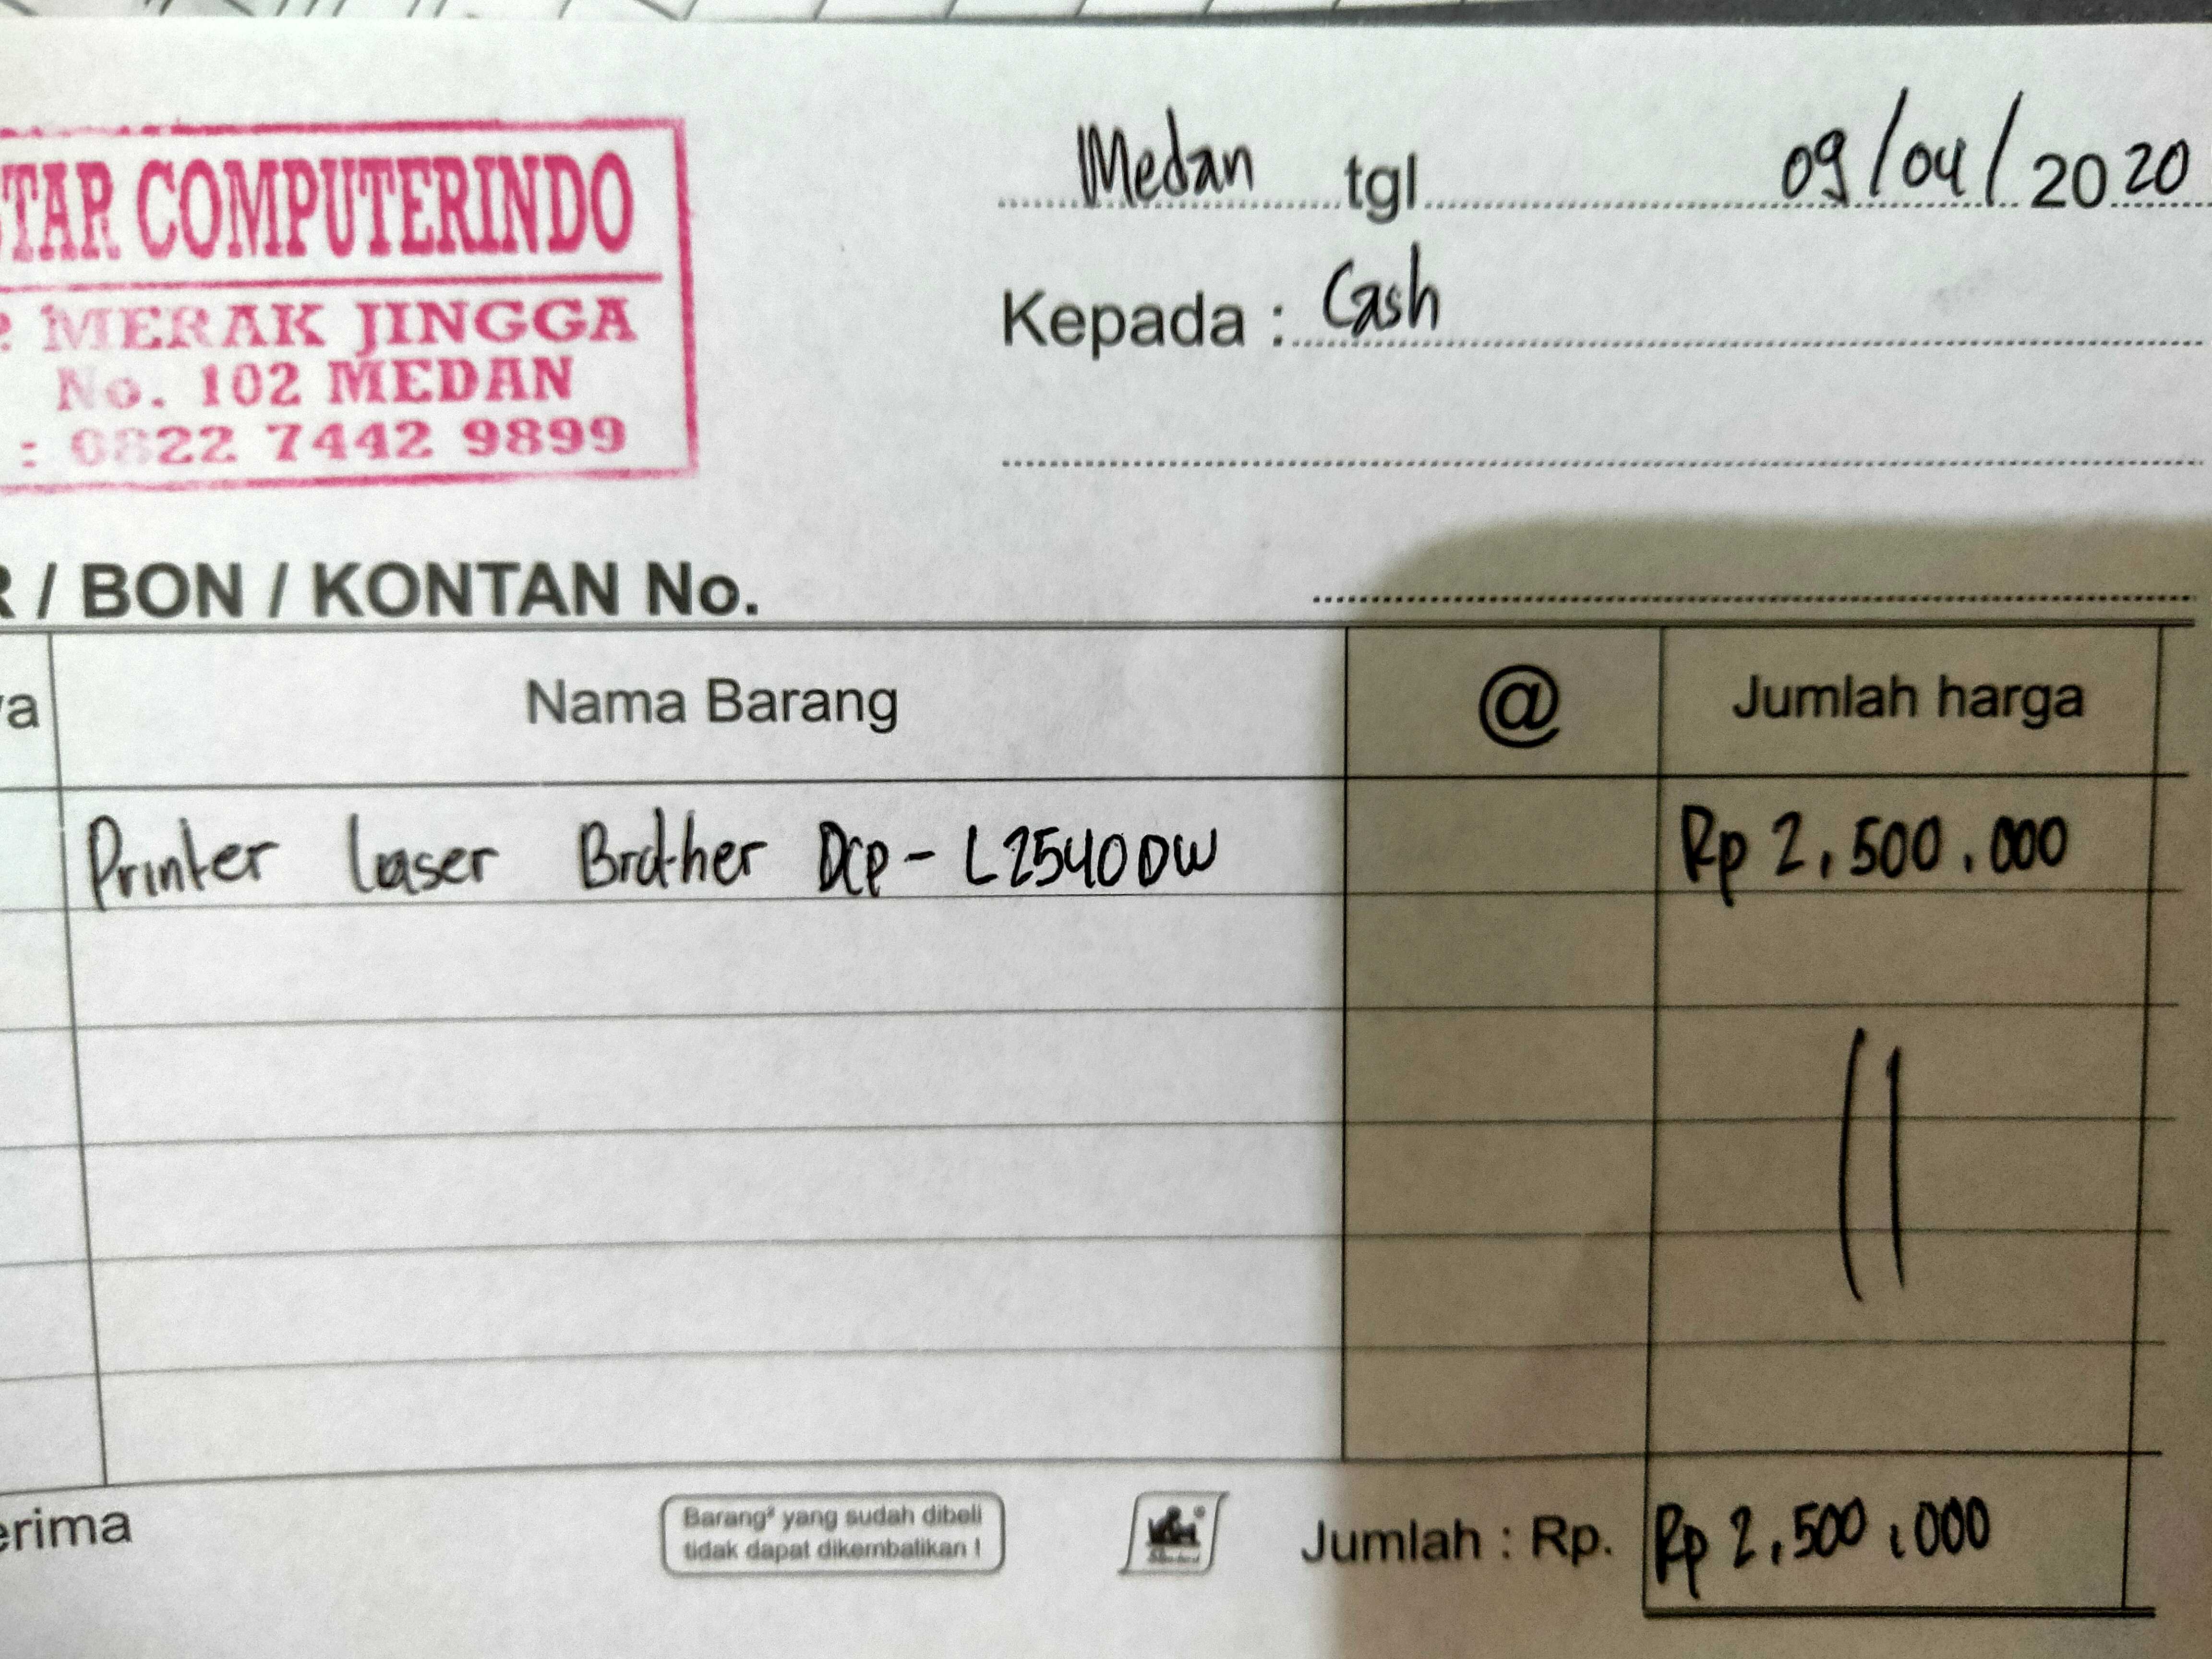 TAR COMPUTERINDO
MERAK JINGGA
No. 102 MEDAN
: 0822 7442 9899
Medan tgl 09/04/2020
Kepada : Cash
R / BON / KONTAN No.
ya Nama Barang @ Jumlah harga
Printer laser Brother Dcp - L2540DW Rp 2,500.000
erima
Barang² yang sudah dibeli
tidak dapat dikembalikan !
Jumlah : Rp. Rp 2,500,000